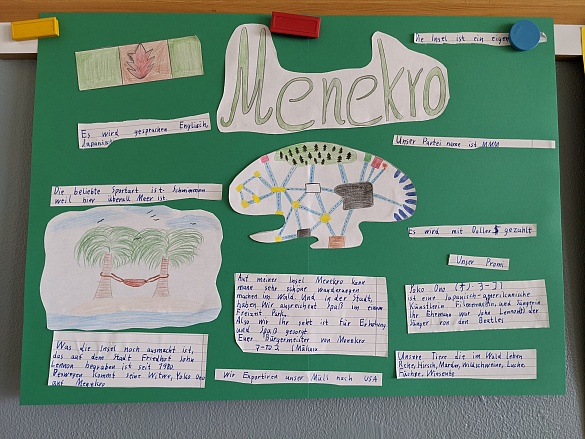 Menekro
Die Insel ist ein eigen
Es wird gesprochen Englisch,
Japanisch
Unser Partei name ist MMM
Die beliebte Sportart ist Schwimmen
weil hier überall Meer ist.
Es wird mit Doller $ gezahlt
Unser Promi
Auf meiner Insel Menekro kann
mann sehr schöne wanderungen
machen im Wald. Und in der Stadt,
haben Wir ausreichent Spaß im einem
Freizeit Park.
Also wir Ihr seht ist für Erholung
und Spaß gesorgt
Euer Bürgermeister von Menekro
Yoko Ono
ist eine Japanisch-amerikanische
Künstlerin Filmemacherin, und Sängerin
Ihr Ehemann war John Lennon der
Sänger von den Beatles
Was die Insel noch ausmacht ist,
das auf dem Stadt Friedhof John
Lennon begraben ist seit 1980.
Deswegen kommt seine Witwe, Yoko Ono
auf Menekro
Wir Exportiren unser Müll nach USA
Unsere Tiere die im Wald leben
Rehe, Hirsch, Marder, Wildschweine, Luchs,
Füchse, Wisente